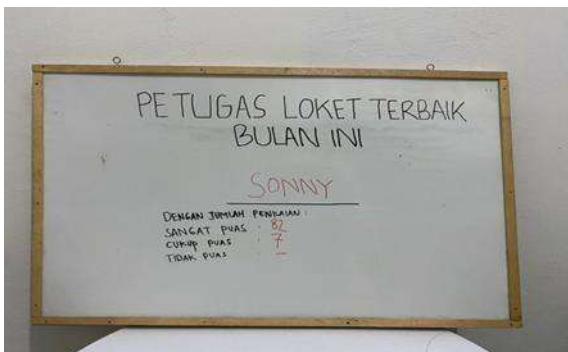 PETUGAS LOKET TERBAIK
BULAN INI
SONNY
DENGAN JUMLAH PENILAIAN :
SANGAT PUAS : 82
CUKUP PUAS : 7
TIDAK PUAS : –